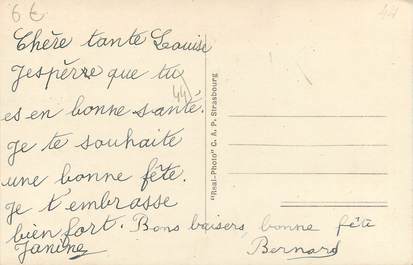 6 €
44
Chère tante Louise
J'espèrre que tu
44
es en bonne santé.
Je te souhaite
une bonne fête.
Je t'embrasse
bien fort. Bons baisers, bonne fête
Janine Bernard
"Real-Photo" C. A. P. Strasbourg